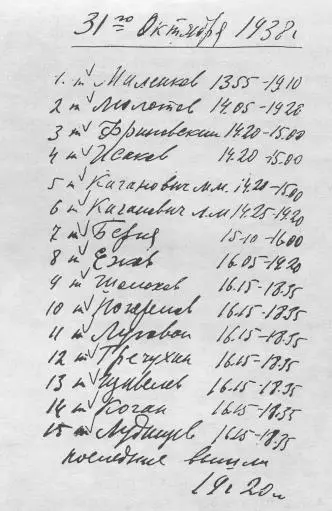 31го Октября 1938г
1. т. Маленков 13.55-19.10
2 т Молотов 14.05-19.20
3 т Фриновский 14.20-15.00
4 т Исаков 14.20-15.00
5 т Каганович М.М. 14.20-15.00
6 т Каганович Л.М 14.25-19.20
7 т Берия 15-10-16.00
8 т Ежов 16.05-19.20
9 т Шолохов 16.15-18.35
10 т Погорелов 16.15-18.35
11 т Луговой 16.15-18.35
12 т Гречухин 16.15-18.35
13 т 16.15-18.35
14 т Коган 16.15-18.35
15 т Лудищев 16.15-18.35
последние вышли
19 ч 20 м